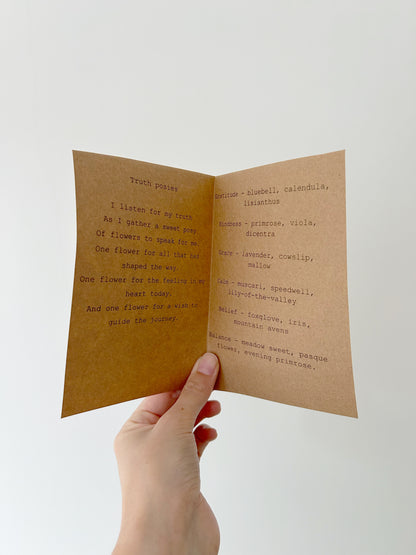 Truth posies
I listen for my truth
As I gather a sweet posy
Of flowers to speak for me.
One flower for all that has
shaped the way.
One flower for the feeling in my
heart today.
And one flower for a wish to
guide the journey.
Gratitude - bluebell, calendula,
lisianthus
Kindness - primrose, viola,
dicentra
Grace - lavender, cowslip,
mallow
Calm - muscari, speedwell,
lily-of-the-valley
Belief - foxglove, iris,
mountain avens
Balance - meadow sweet, pasque
flower, evening primrose.